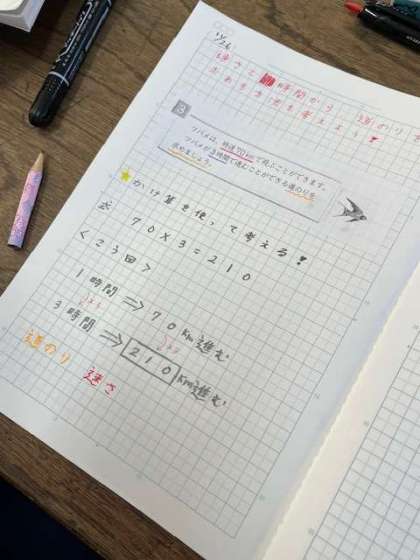 11/26
速さと時間から道のりを
求める方法を考えよう！
3
ツバメは、時速70kmで飛ぶことができます。
ツバメが3時間で進むことができる道のりを
求めましょう。
かけ算を使って考える！
式 70×3=210
<こう回>
1時間⇒70km進む
×3 ×3
3時間⇒210km進む
道のり
速さ